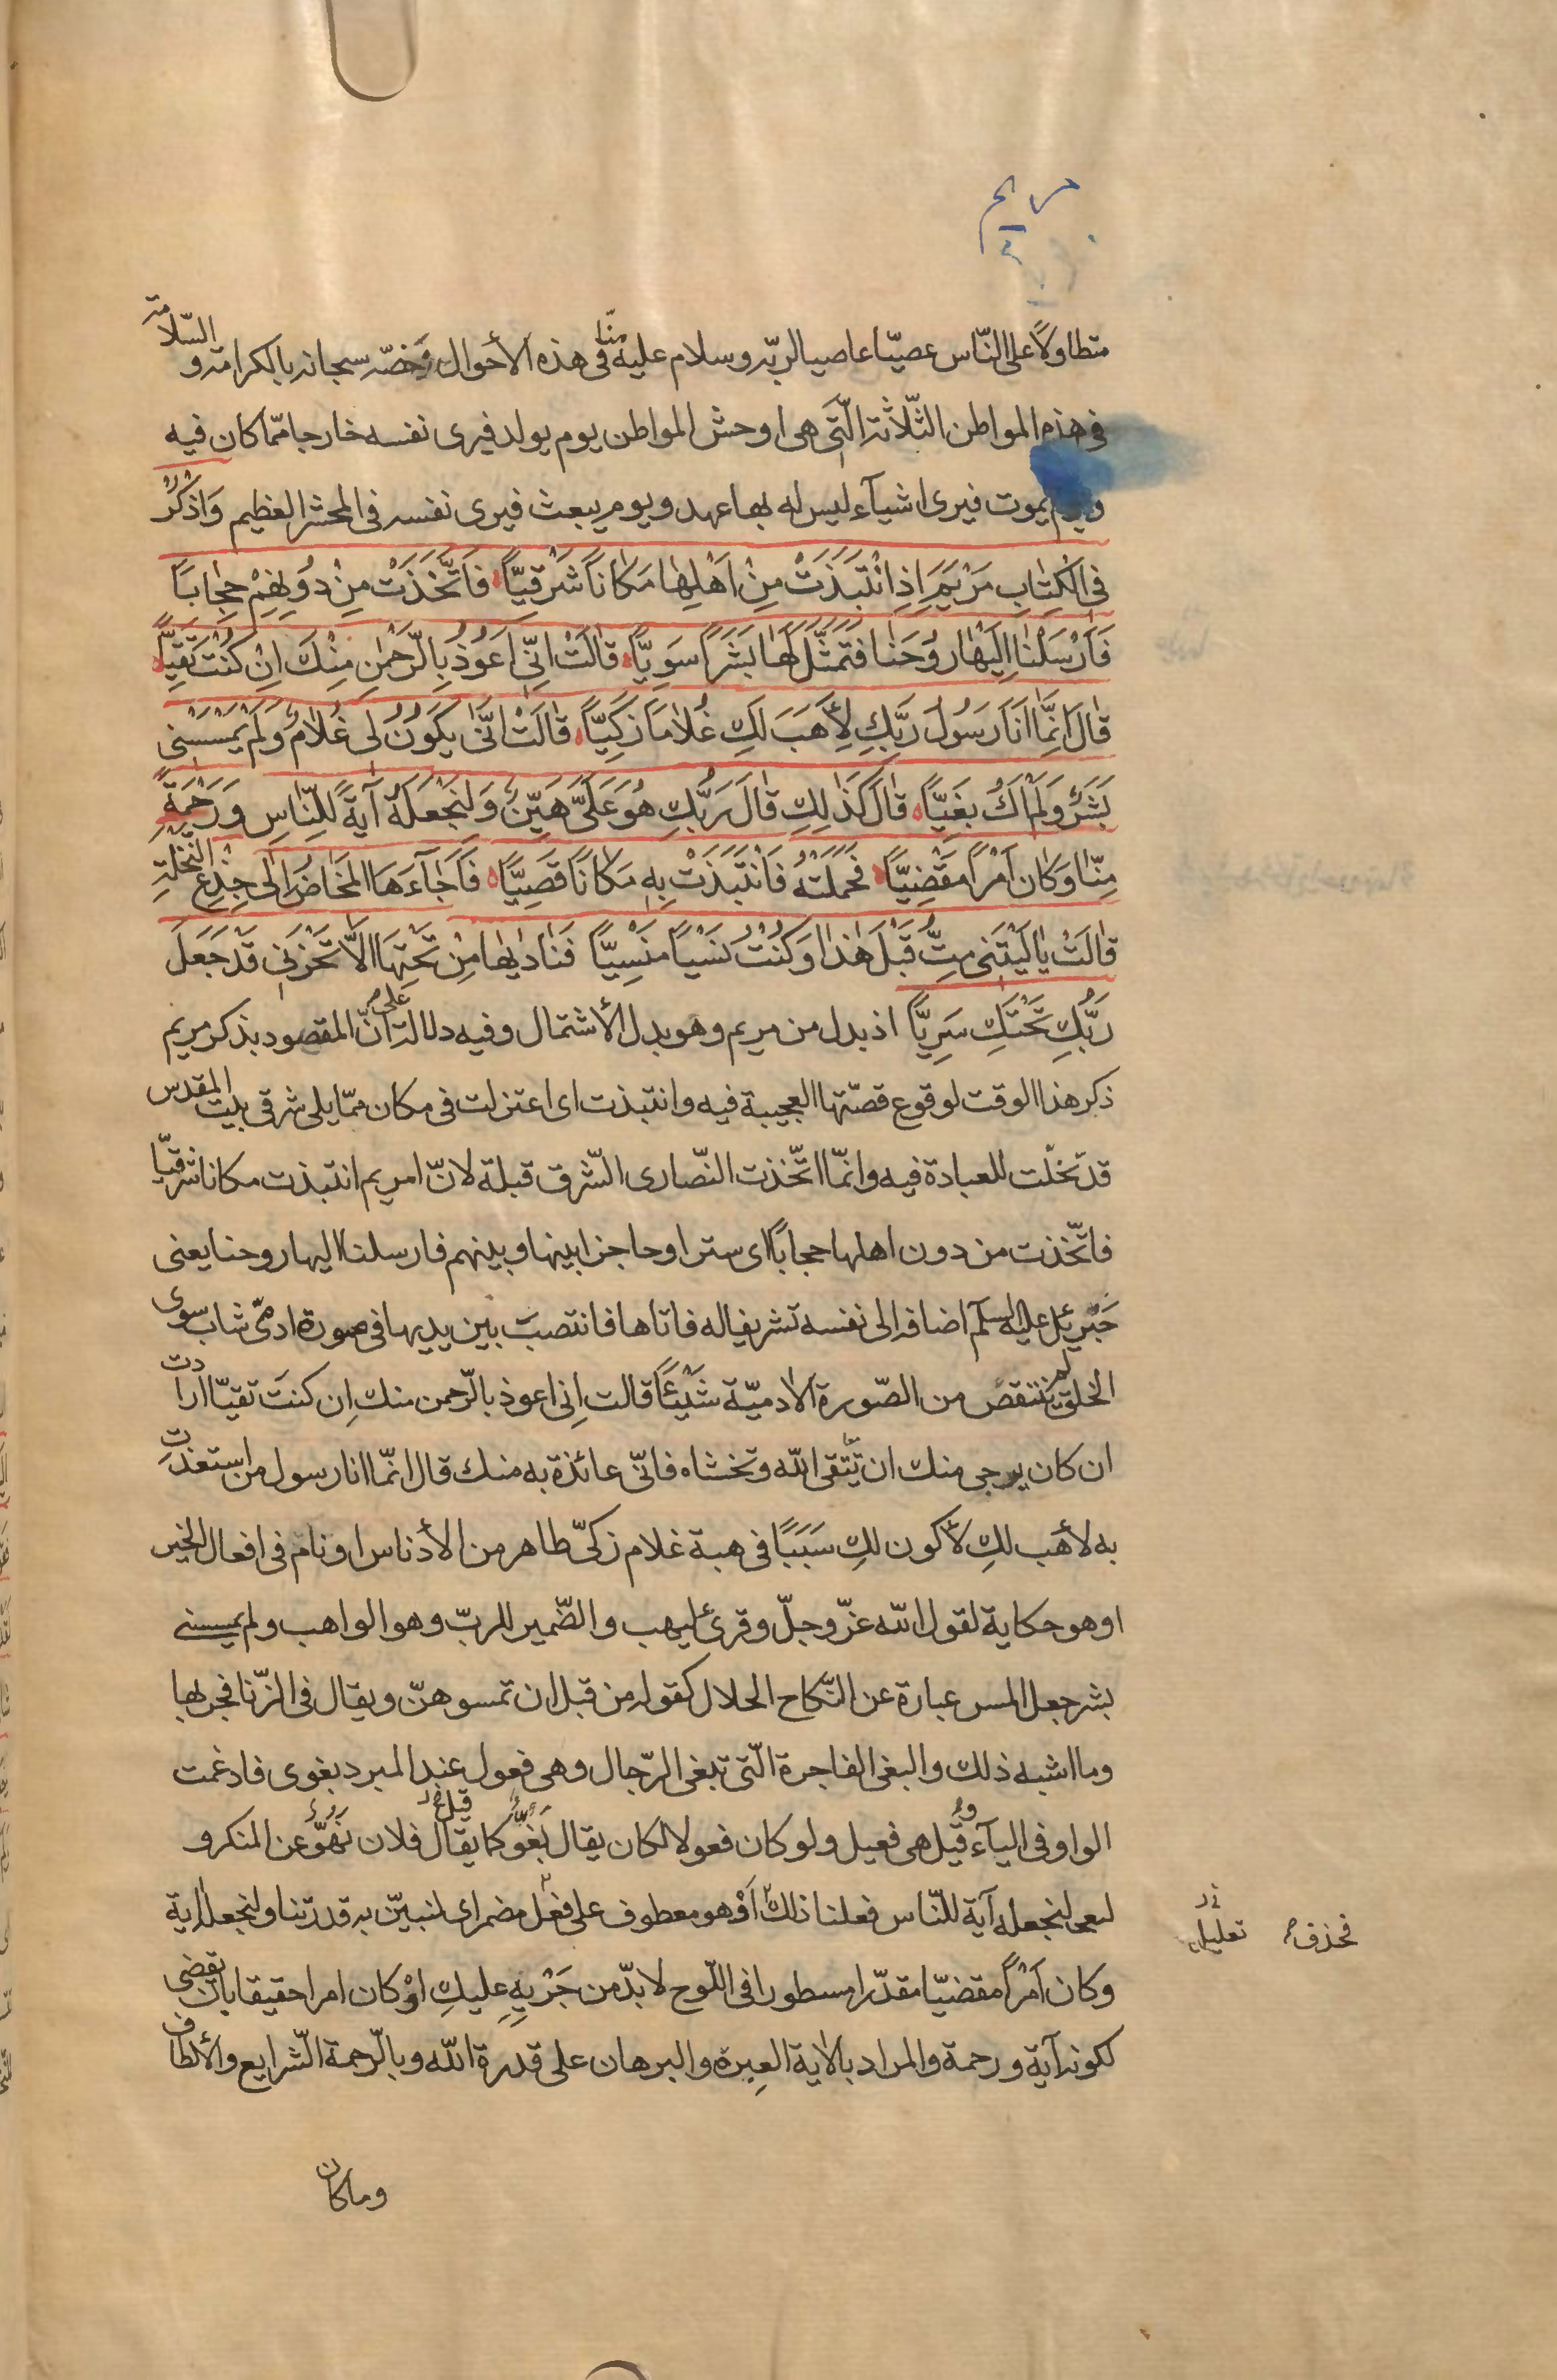 مريم
متطاولاً على النّاس عصيّا عاصيا لربّه وسلام عليه منّا فى هذه الأحوال وخصّه سبحانه بالكرامة و السّلامة
فى هذه المواطن الثّلاثة الّتى هى اوحش المواطن يوم يولد فيرى نفسه خارجا ممّا كان فيه
ويوم يموت فيرى اشيآء ليس له بها عهد ويوم يبعث فيرى نفسه فى المحشر العظيم وَاذْكُرْ
فِى الْكِتٰابِ مَرْيَمَ اِذِ انْتَبَذَتْ مِنْ اَهْلِهٰا مَكٰاناً شَرْقِيّاً فَاتَّخَذَتْ مِنْ دُونِهِمْ حِجٰاباً
فَاَرْسَلْنٰا اِلَيْهٰا رُوحَنٰا فَتَمَثَّلَ لَهٰا بَشَراً سَوِيّاً قٰالَتْ اِنِّى اَعُوذُ بِالرَّحْمٰنِ مِنْكَ اِنْ كُنْتَ تَقِيّاً
قٰالَ اِنَّمٰا اَنَا رَسُولُ رَبِّكِ لِأَهَبَ لَكِ غُلاٰماً زَكِيّاً قٰالَتْ اَنّٰى يَكُونُ لِى غُلاٰمٌ وَلَمْ يَمْسَسْنِى
بَشَرٌ وَلَمْ اَكُ بَغِيّاً قٰالَ كَذٰلِكِ قٰالَ رَبُّكِ هُوَ عَلَىَّ هَيِّنٌ وَلِنَجْعَلَهُ آيَةً لِلنّٰاسِ وَرَحْمَةً
مِنّٰا وَكٰانَ اَمْراً مَقْضِيّاً فَحَمَلَتْهُ فَانْتَبَذَتْ بِهِ مَكٰاناً قَصِيّاً فَاَجٰآءَهَا الْمَخٰاضُ اِلٰى جِذْعِ النَّخْلَةِ
قٰالَتْ يٰا لَيْتَنِى مِتُّ قَبْلَ هٰذٰا وَكُنْتُ نَسْياً مَنْسِيّاً فَنٰادٰيهٰا مِنْ تَحْتِهٰا اَلاّٰ تَحْزَنِى قَدْ جَعَلَ
رَبُّكِ تَحْتَكِ سَرِيّاً اذ بدل من مريم وهو بدل الأشتمال وفيه دلالة على انّ المقصود بذكر مريم
ذكر هذا الوقت لوقوع قصّتها العجيبة فيه وانتبذت اى اعتزلت فى مكان ممّا يلى شرقى بيت المقدس
قد تخلّت للعبادة فيه وانّما اتّخذت النّصارى الشّرق قبلة لانّ امريم انتبذت مكانا شرقيّا
فاتّخذت من دون اهلها حجاباً اى سترا وحاجزا بينها وبينهم فارسلنا اليها روحنا يعنى
جَبْرئيل عليه السلم اضافه الى نفسه تشريفا له فاتاها فانتصبَ بين يديها فى صورة ادمىّ شاب سوى
الخلق لم ينتقص من الصّورة الادميّة شَيْئاً قالت اِنى اعوذ بالرّحمن منك اِن كنتَ تقيّا ارادت
ان كان يرجى منك ان تتّقى اللّه وتخشاه فانّى عائذة به منك قال انّما انا رسول من استعذتِ
به لأهَب لكِ لأكون لكِ سَبَباً فى هبة غلام زكىّ طاهر من الأدناس او نام فى افعال الخير
او هو حكاية لقول اللّه عزّ وجلّ وقرئ ليهب والضّمير للربّ وهو الواهب ولم يمسسنى
بشر جعل المس عبارة عن النّكاح الحلال كقوله من قبل ان تمسوهنّ ويقال فى الزّنا فجر بها
وما اشبه ذلك والبغى الفاجرة الّتى تبغى الرّجال وهى فعول عند المبرد بغوى فادغمت
الواو فى اليآء وقيل هى فعيل ولو كان فعولا لكان يقال بَغُوٌّ كما يقال فلان نَهُوٌّ عن المنكر و
لنجعله آية للنّاس فعلنا ذلك اَوْ هو معطوف على فعل مضمر اى لنبيّن به قدرتنا ولنجعله اية
تعليل فحذف
وكان اَمْراً مقضيّا مقدّرا مسطورا فى اللّوح لا بدّ من جَرْيِهِ عليكِ اوْ كان امرا حقيقا بان تقضى
لكونه آية ورحمة والمراد بالاية العِبرة والبرهان على قدرة اللّه وبالرّحمة الشّرايع والألطاف
وما كان